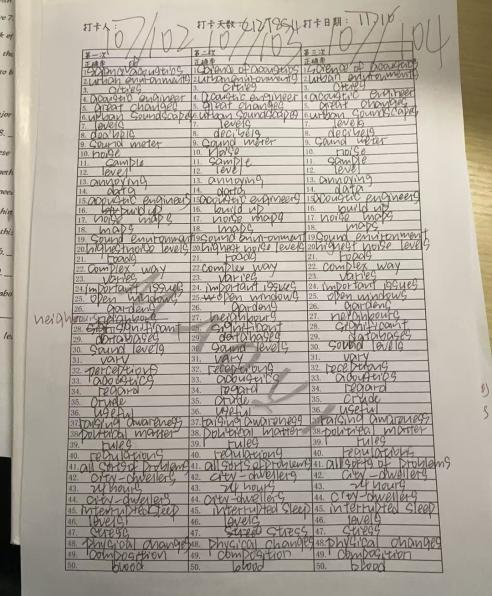 打卡人: 107/102 打卡天数: 103 打卡日期: 11/10 104
第一次 第二次 第三次
正确率 正确率 正确率
1. science acoustics 1. science of acoustics 1. science of acoustics
2. urban environment 2. urban environment 2. urban environments
3. cities 3. cities 3. cities
4. acoustic engineer 4. acoustic engineer 4. acoustic engineer
5. great changes 5. great changes 5. great changes
6. urban soundscapes 6. urban soundscapes 6. urban soundscapes
7. levels 7. levels 7. levels
8. decibels 8. decibels 8. decibels
9. sound meter 9. sound meter 9. sound meter
10. noise 10. noise 10. noise
11. sample 11. sample 11. sample
12. level 12. level 12. level
13. annoying 13. annoying 13. annoying
14. data 14. data 14. data
15. acoustic engineers 15. acoustic engineers 15. acoustic engineers
16. build up 16. build up 16. build up
17. noise maps 17. noise maps 17. noise maps
18. maps 18. maps 18. maps
19. sound environment 19. sound environment 19. sound environment
20. highest noise levels 20. highest noise levels 20. highest noise levels
21. roads 21. roads 21. roads
22. complex way 22. complex way 22. complex way
23. varies 23. varies 23. varies
24. important issues 24. important issues 24. important issues
25. open windows 25. open windows 25. open windows
26. gardens 26. gardens 26. gardens
27. neighbour 27. neighbours 27. neighbours
28. significant 28. significant 28. significant
29. databases 29. databases 29. databases
30. sound levels 30. sound levels 30. sound levels
31. vary 31. vary 31. vary
32. perceptions 32. receptions 32. receptions
33. acoustics 33. acoustics 33. acoustics
34. regard 34. regard 34. regard
35. crude 35. crude 35. crude
36. useful 36. useful 36. useful
37. raising awareness 37. raising awareness 37. raising awareness
38. political matter 38. political matter 38. political matter
39. rules 39. rules 39. rules
40. regulations 40. regulations 40. regulations
41. all sorts of problems 41. all sorts of problems 41. all sorts of problems
42. city-dwellers 42. city-dwellers 42. city-dwellers
43. 24 hours 43. 24 hours 43. 24 hours
44. city-dwellers 44. city-dwellers 44. city-dwellers
45. interrupted sleep 45. interrupted sleep 45. interrupted sleep
46. levels 46. levels 46. levels
47. stress 47. stress 47. stress
48. physical changes 48. physical changes 48. physical changes
49. composition 49. composition 49. composition
50. blood 50. blood 50. blood